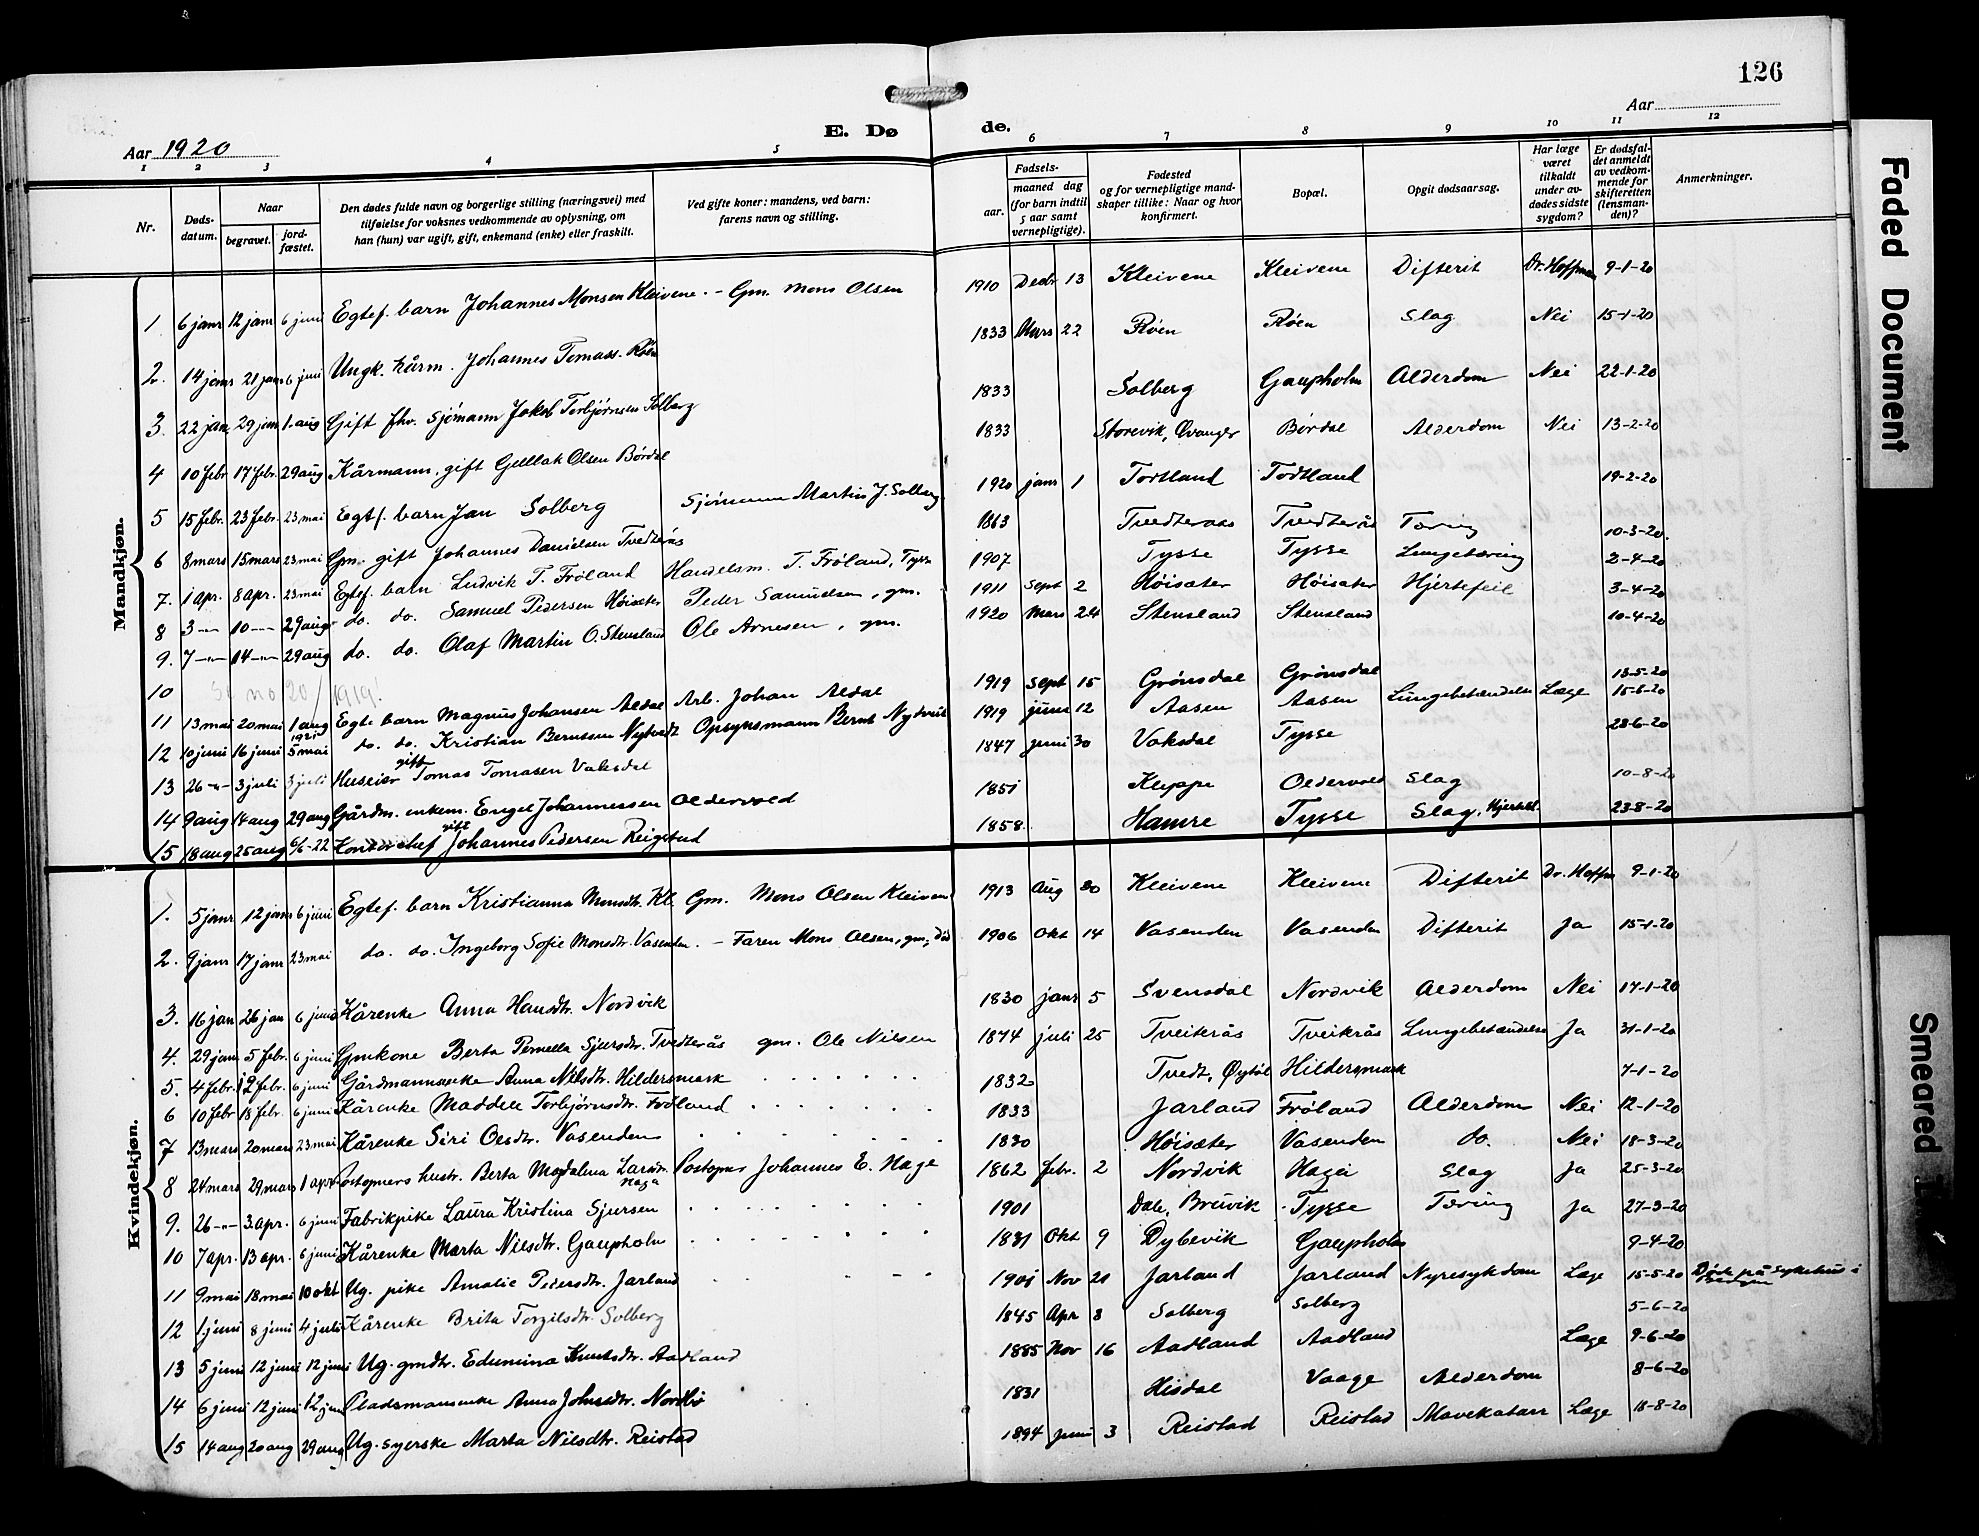 126
Aar 1920
E. Døde.
Aar
1 2 3 4 5 6 7 8 9 10 11 12
Nr.
Døds-datum.
Naar
begravet.
jord-fæstet.
Den dødes fulde navn og borgerlige stilling (næringsvei) med tilføielse for voksnes vedkommende av oplysning, om han (hun) var ugift, gift, enkemand (enke) eller fraskilt.
Ved gifte koner: mandens, ved barn: farens navn og stilling.
Fødsels-
aar.
maaned dag
(for barn indtil 5 aar samt vernepligtige).
Fødested og for vernepligtige mandskaper tillike: Naar og hvor konfirmert.
Bopæl.
Opgit dødsaarsag.
Har læge været tilkaldt under avdødes sidste sygdom?
Er dødsfaldet anmeldt av vedkommende for skifteretten (lensmanden)?
Anmerkninger.
Mandkjøn.
1 6 janr 12 janr 6 juni Egtef. barn Johannes Monsen Kleivene. - Gm. Mons Olsen 1910 Decbr 13 Kleivene Kleivene Difterit Dr. Hoffman 9-1-20
2. 14 janr 21 janr 6 juni Ungk. kårm. Johannes Tomass. Røen 1833 Mars 22 Røen Røen Slag Nei 15-1-20
3. 22 jan 29 jan 1. aug Gift fhv. Sjömann Jakob Torbjørnsen Solberg 1833 Solberg Gaupholm Alderdom Nei 22-1-20
4 10 febr 17 febr. 29 aug Kårmann, gift Gullak Olsen Børdal 1833 Storevik, Øvanger Børdal Alderdom Nei 13-2-20
5 15 febr. 23 febr. 23 mai Egtf. barn Jan Solberg Sjömann Martin J. Solberg 1920 janr 1 Todtland Todtland 19-2-20
6 8 mars 15 mars 23 mai Gm. gift Johannes Danielsen Tvedterås 1863 Tvedteraas Tvedterås Tæring 10-3-20.
7. 1 apr. 8 apr. 23 mai Egtef. barn Ludvik T. Frøland Handelsm. T. Frøland, Tysse 1907 Tysse Tysse Lungetæring 2-4-20
8 3 -"- 10 -"- 29 aug do. do. Samuel Pedersen Høisæter Peder Samuelsen, gm. 1911 Sept 2 Høisæter Høisæter Hjertefeil 3-4-20
9. 7 -"- 14 -"- 29 aug do. do. Olaf Martin O. Stensland Ole Arnesen, gm. 1920 Mars 24 Stensland Stensland 10-4-20
10 Se no 20/1919!
11 13 mai 20 mai 1 aug Egte barn Magnus Johansen Aldal Arb. Johan Aldal 1919 Sept 15 Grönsdal Grönsdal 18-5-20
12 10 juni 16 juni 1921 5 mai do. do. Kristian Berntsen Nytvedt Opsynsmann Bernt Nytveit 1919 juni 12 Aasen Aasen Lungebetændelse Læge 15-6-20
13 26 -"- 3 juli 3 juli Huseier gift Tomas Tomasen Vaksdal 1847 juni 30 Vaksdal Tysse 28-6-20
14 9 aug 14 aug 29 aug Gårdm. enkem. Engel Johannessen Oldervold 1851 Kleppe Oldervold Slag 10-8-20
15 18 aug 25 aug 6/6-22 Kontorchef gift Johannes Pedersen Reigstad 1858. Hamre Tysse Slag, 23-8-20
Kvindekjøn.
1. 5 janr 12 janr 6 juni Egtef. barn Kristianna Monsdtr. Kl. Gm. Mons Olsen Kleivene 1913 Aug 30 Kleivene Kleivene Difterit Dr. Hoffm 9-1-20
2. 9 janr 17 janr 23 mai do. do. Ingeborg Sofie Monsdtr. Vasenden. - Faren Mons Olsen, gm; Död 1906 Okt 14 Vasenden Vasenden Difterit Ja 15-1-20
3. 16 jan 26 jan 6 juni Kårenke Anna Hansdtr. Nordvik 1830 janr 5 Svensdal Nordvik Alderdom Nei 17-1-20
4. 29 jan 5 febr. 6 juni Gmkone Berta Pernella Sjursdtr. Tvedterås gm. Ole Nilsen 1874 juli 25 Tveiterås Tveiterås Lungebetændelse Ja 31-1-20
5. 4 febr. 12 febr. 6 juni Gårdmannsenke Anna Nilsdtr. Hildersmark 1832 Tvedt, Hildersmark 7-1-20
6 10 febr 18 febr. 6 juni Kårenke Maddele Torbjørnsdtr. Frøland 1833 Jarland Frøland Alderdom Nei 12-1-20
7 13 mars 20 mars 23 mai Kårenke Siri Olsdtr. Vasenden 1830 Høisæter Vasenden do. Nei 18-3-20
8 24 mars 29 mars 1 apr Postopners hustr. Berta Magdalena Larsdtr. Haga Postopner Johannes E. Hage 1862 febr. 2 Nordvik Haga Slag Ja 25-3-20
9. 26 -"- 3. apr. 6 juni Fabrikpike Laura Kristina Sjursen 1901 Dale, Bruvik Tysse Tæring Ja 27-3-20
10 7 apr. 13 apr. 6 juni Kårenke Marta Nilsdtr. Gaupholm 1831 Okt 9 Dybevik Gaupholm 9-4-20
11 9 mai 18 mai 10 okt Ug. pike Amalie Pedersdtr. Jarland 1901 Nov 21 Jarland Jarland Nyresykdom Læge 15-5-20 Døde på sykehus i Bergen
12 1 juni 8 juni 4 juli Kårenke Brita Torgilsdtr. Solberg 1845 Apr 3 Solberg Solberg 5-6-20
13 5 juni 12 juni 12 juni Ug. gmdtr. Edumina Knutsdtr. Aadland 1885 Nov 16 Aadland Aadland Læge 9-6-20
14 6 juni 12 juni 12 juni Pladsmannsenke Anna Johnsdtr. Nordbø 1831 Hisdal Vaage Alderdom 8-6-20
15 14 aug 20 aug 29 aug Ug. syerske Marta Nilsdtr. Reistad 1894 juni 3 Reistad Reistad Mavekatarr Læge 18-8-20
Faded Document
Smeared